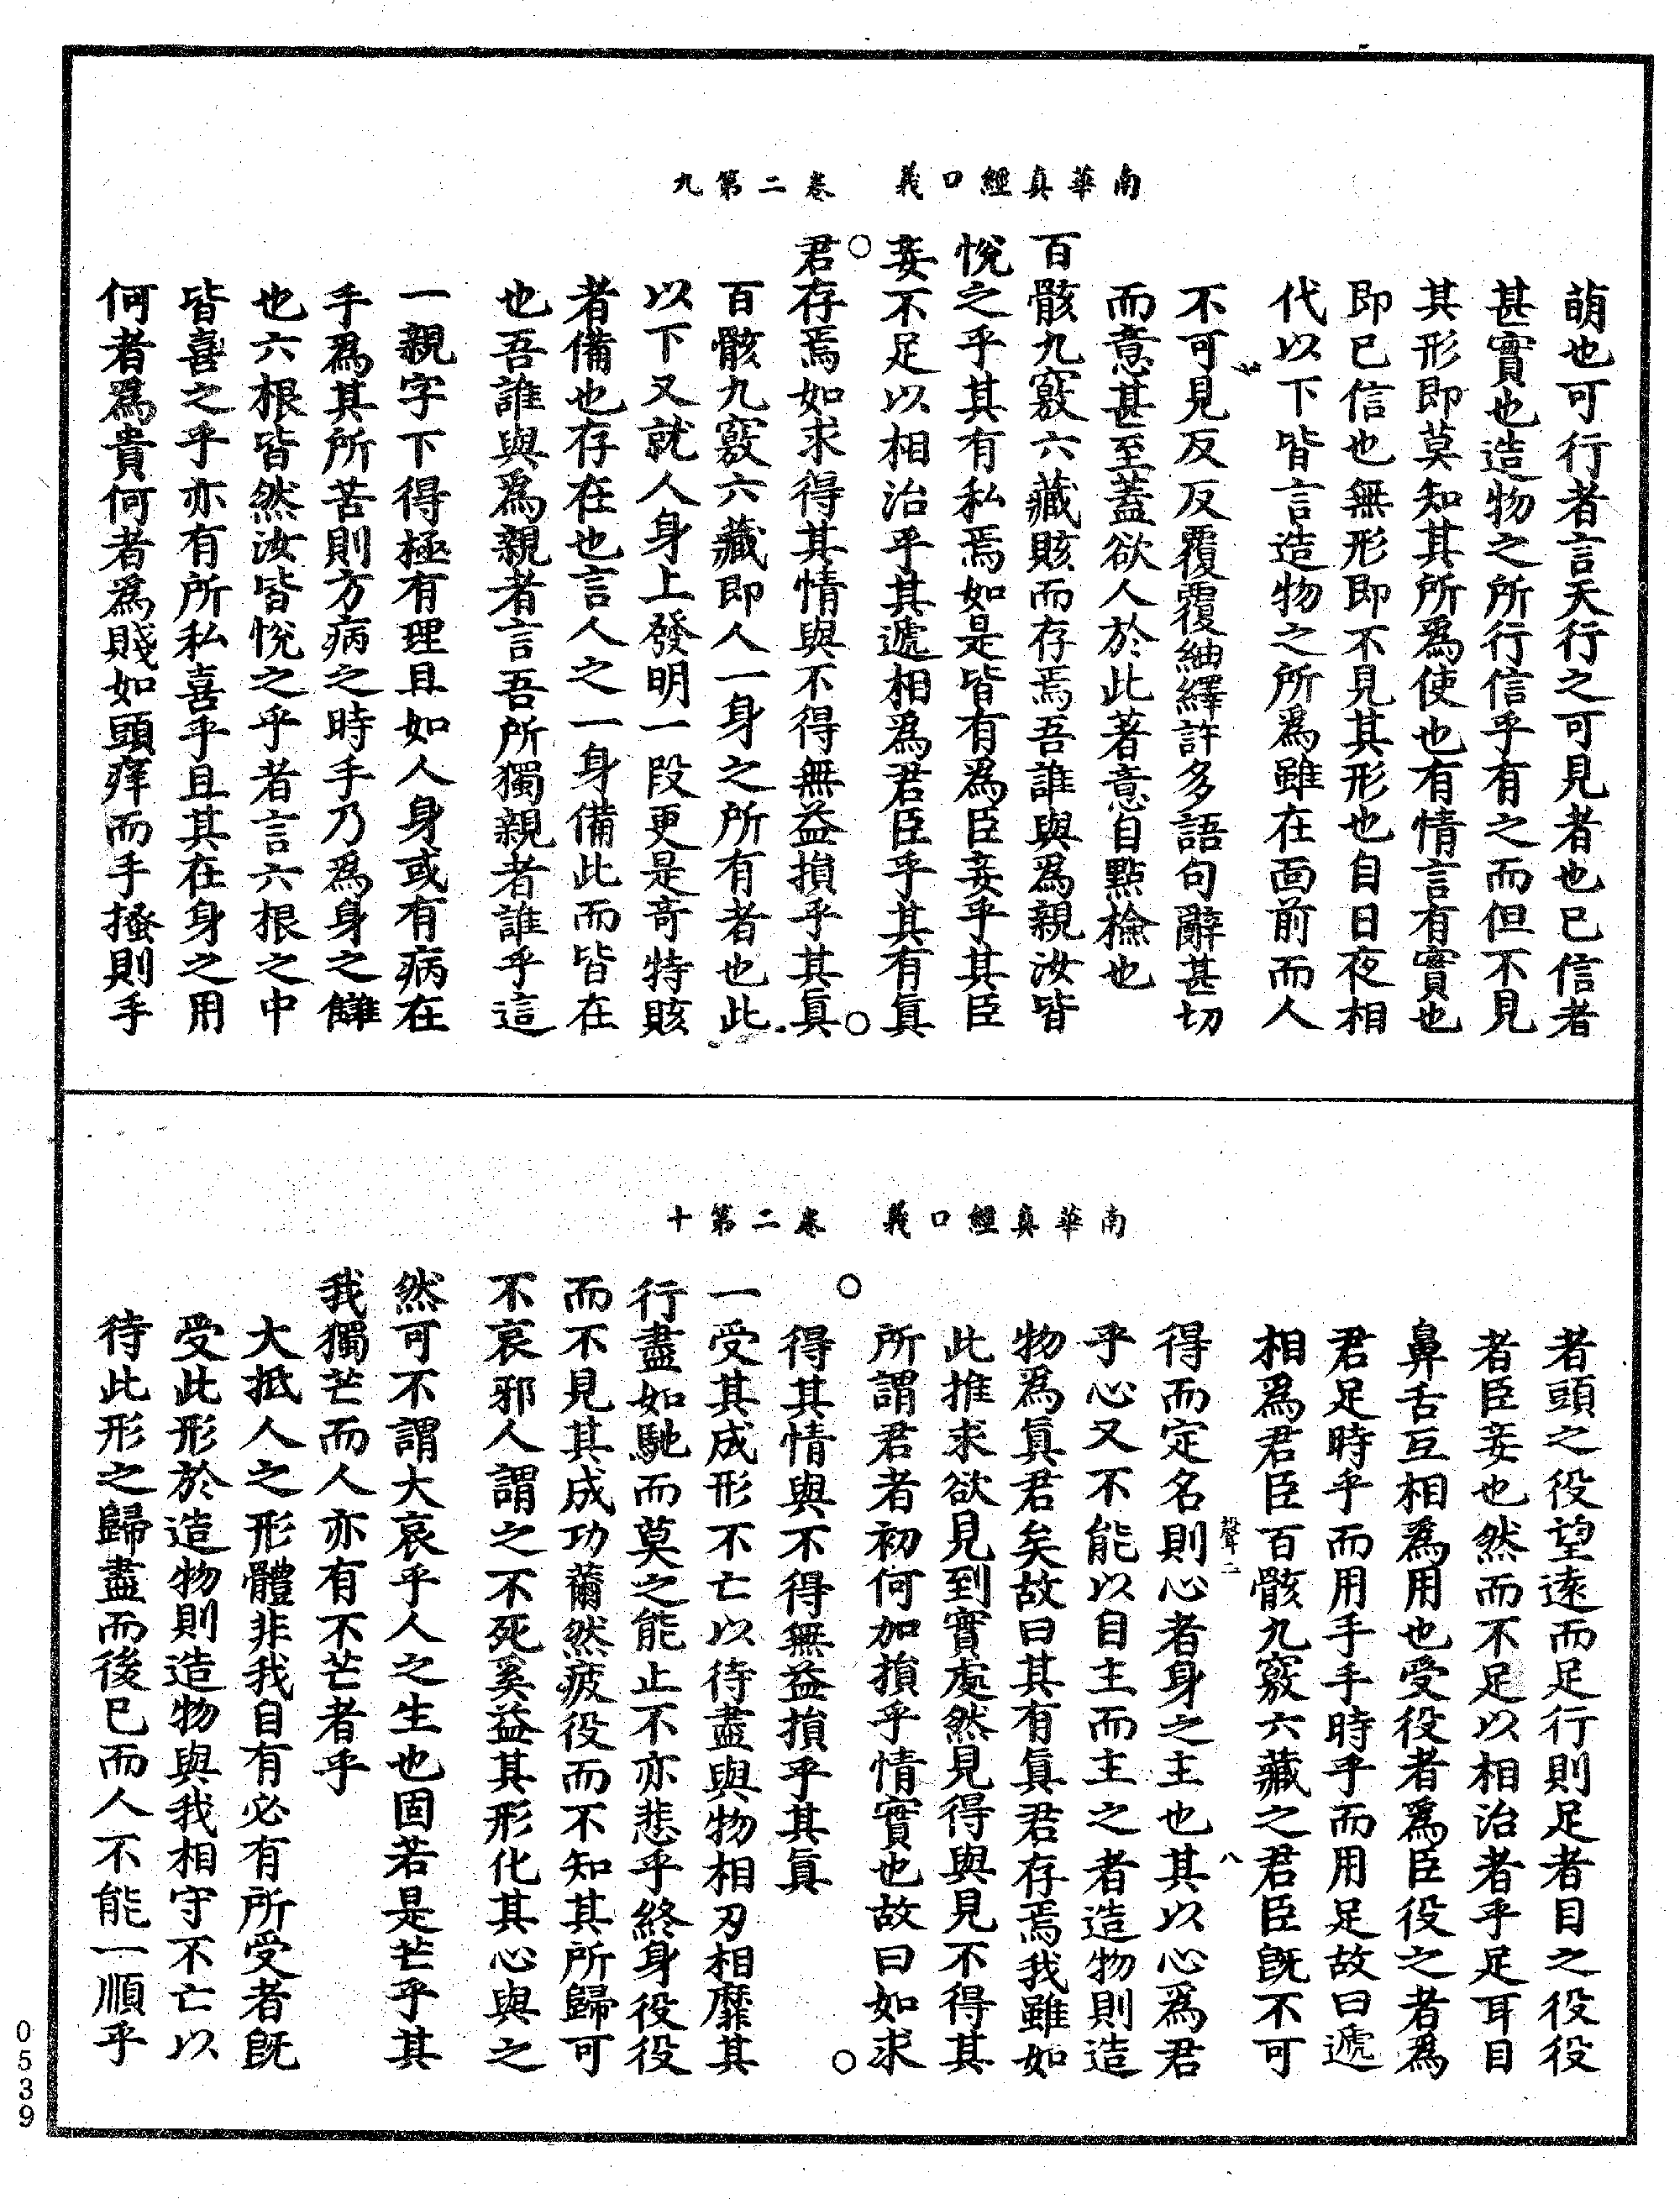 南華真經口義　卷二第九
萌也可行者言天行之可見者也已信者
甚實也造物之所行信乎有之而但不見
其形即莫知其所為使也有情言有實也
即已信也無形即不見其形也自日夜相
代以下皆言造物之所為雖在面前而人
不可見反反覆覆紬繹許多語句辭甚切
而意甚至蓋欲人於此著意自點檢也
百骸九竅六藏賅而存焉吾誰與為親汝皆
悅之乎其有私焉如是皆有為臣妾乎其臣
妾不足以相治乎其遞相為君臣乎其有眞
君存焉如求得其情與不得無益損乎其眞
百骸九竅六藏即人一身之所有者也此
以下又就人身上發明一段更是奇特賅
者備也存在也言人之一身備此而皆在
也吾誰與為親者言吾所獨親者誰乎這
一親字下得極有理且如人身或有病在
手為其所苦則方病之時手乃為身之讎
也六根皆然汝皆悅之乎者言六根之中
皆喜之乎亦有所私喜乎且其在身之用
何者為貴何者為賤如頭痒而手搔則手
南華真經口義　卷二第十
者頭之役望遠而足行則足者目之役役
者臣妾也然而不足以相治者乎足耳目
鼻舌互相為用也受役者為臣役之者為
君足時乎而用手手時乎而用足故曰遞
相為君臣百骸九竅六藏之君臣既不可
聲二　八
得而定名則心者身之主也其以心為君
乎心又不能以自主而主之者造物則造
物為眞君矣故曰其有眞君存焉我雖如
此推求欲見到實處然見得與見不得其
所謂君者初何加損乎情實也故曰如求
得其情與不得無益損乎其眞
一受其成形不亡以待盡與物相刃相靡其
行盡如馳而莫之能止不亦悲乎終身役役
而不見其成功薾然疲役而不知其所歸可
不哀邪人謂之不死奚益其形化其心與之
然可不謂大哀乎人之生也固若是芒乎其
我獨芒而人亦有不芒者乎
大抵人之形體非我自有必有所受者既
受此形於造物則造物與我相守不亡以
待此形之歸盡而後已而人不能一順乎
0539